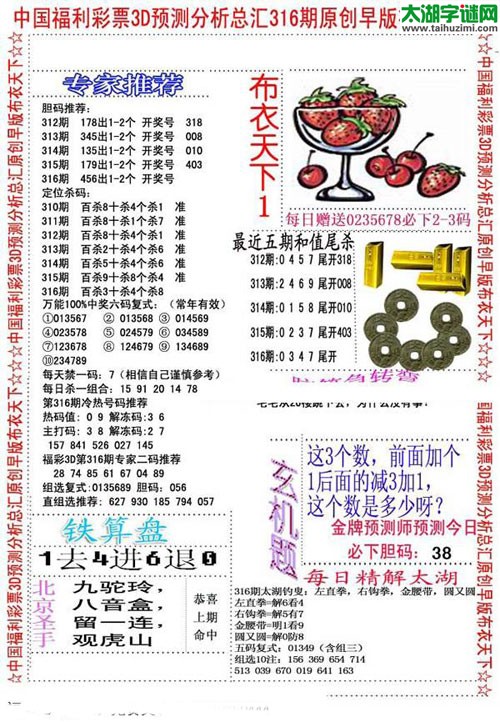 中国福利彩票3D预测分析总汇316期原创早版
太湖字谜网
www.taihuzimi.com
☆中国福利彩票3D预测分析总汇原创早版布衣天下☆☆
专家推荐
胆码推荐:
312期 178出1-2个 开奖号 318
313期 345出1-2个 开奖号 008
314期 135出1-2个 开奖号 010
315期 179出1-2个 开奖号 403
316期 456出1-2个 开奖号
定位杀码:
310期 百杀8十杀4个杀1 准
311期 百杀8十杀1个杀9 准
312期 百杀6十杀4个杀9 准
313期 百杀2十杀4个杀5 准
314期 百杀5十杀4个杀6 准
315期 百杀9十杀8个杀4 准
316期 百杀3十杀4个杀8
万能100%中奖六码复式: (常年有效)
①013567 ②013568 ③014569
④023578 ⑤024579 ⑥034589
⑦123678 ⑧124679 ⑨134689
⑩234789
每天禁一码: 7 (相信自己谨慎参考)
每日杀一组合: 15 91 20 14 78
第316期冷热号码推荐
热码值: 0 9 解冻码:3 6
主打码: 3 8 解冻码:2 7
157 841 526 027 145
福彩3D第316期专家二码推荐
28 74 85 61 67 04 89
组选复式:0135689 胆码: 056
直组选推荐: 627 930 185 794 057
铁算盘
1去4进6退5
北京圣手
九驼玲,
八音盒,
留一连,
观虎山
恭喜
上期
命中
布衣天下1
每日赠送0235678必下2-3码
最近五期和值尾杀
312期:0 4 5 7 尾开318
313期:2 4 6 9 尾开008
314期:0 1 5 8 尾开010
315期:0 2 3 7 尾开403
316期:0 3 4 7 尾开
玄机题
这3个数, 前面加个
1后面的减3加1,
这个数是多少呀?
金牌预测师预测今日
必下胆码: 38
每日精解太湖
316期太湖钓叟: 左直拳, 右钩拳, 金腰带, 圆又圆
左直拳=解6看4
右钩拳=解5有7
金腰带=明1看9
圆又圆=解0防8
五码复式: 01349 (含组三)
组选10注: 156 369 654 714
513 039 670 019 641 163
☆中国福利彩票3D预测分析总汇原创早版布衣天下☆☆